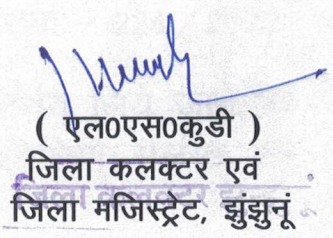 ( एल0एस0कुडी )
जिला कलक्टर एवं
जिला मजिस्ट्रेट, झुंझुनूं